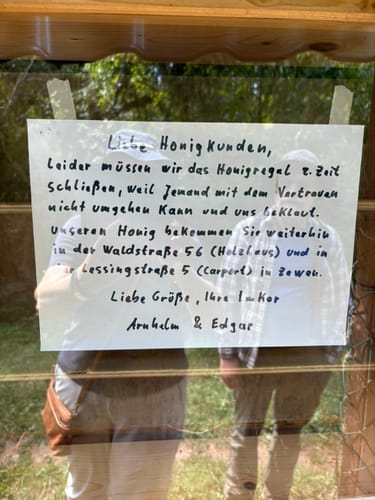 Liebe Honigkunden,
leider müssen wir das Honigregal z. Zeit
schließen, weil Jemand mit dem Vertrauen
nicht umgehen kann und uns beklaut.
Unseren Honig bekommen Sie weiterhin
in der Waldstraße 56 (Holzhaus) und in
der Lessingstraße 5 (Carport) in Zewen.
Liebe Grüße, Ihre Imker
Arnhelm & Edgar